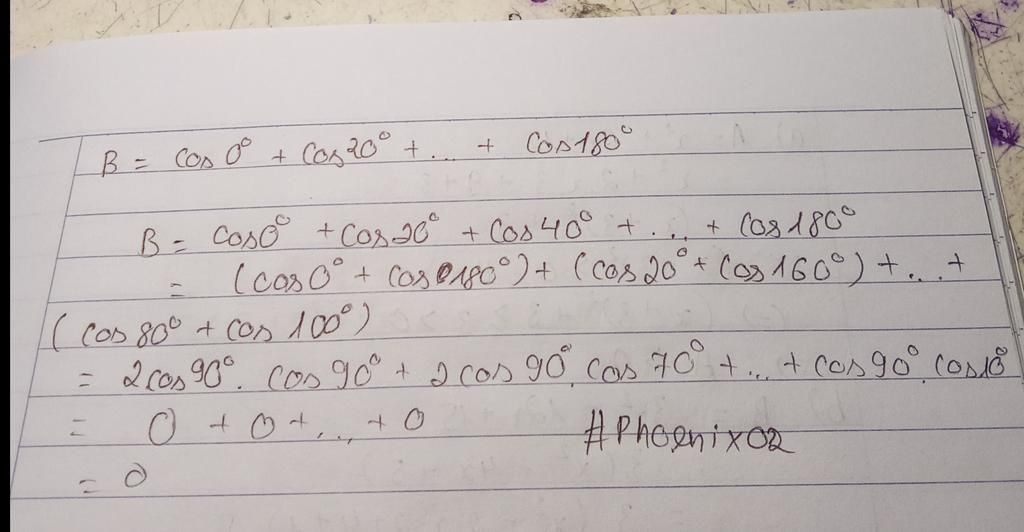 B = cos 0° + cos 20° + ... + cos 180°
B = cos 0° + cos 20° + cos 40° + ... + cos 180°
= (cos 0° + cos 180°) + (cos 20° + cos 160°) + ... +
(cos 80° + cos 100°)
= 2 cos 90° . cos 90° + 2 cos 90° . cos 70° + ... + cos 90° . cos 10°
= 0 + 0 + ... + 0
#Phoenix02
= 0